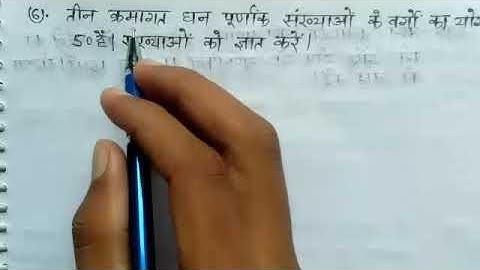 (6). तीन क्रमागत धन पूर्णांक संख्याओं के वर्गों का योग
50 है। संख्याओं को ज्ञात करें।